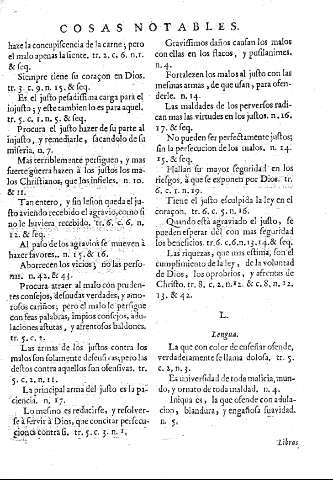 COSAS NOTABLES.
haze la concupiscencia de la carne; pero
el malo apenas la siente. tr. 2. c. 6. n. 1.
& seq.
Siempre tiene su coraçon en Dios.
tr. 3. c. 9. n. 15. & seq.
Es el justo pesadissima carga para el
injusto; y este tambien lo es para aquel.
tr. 5. c. 1. n. 5. & seq.
Procura el justo hazer de su parte al
injusto, y remediarle, sacandolo de su
miseria, n. 7.
Mas terriblemente persiguen, y mas
fuerte guerra hazen à los justos los ma-
los Christianos, que los infieles. n. 10.
& 11.
Tan entero, y sin lesion queda el ju-
sto aviendo recebido el agravio, como si
no le huviera recebido. tr. 6. c. 6. n.
12. & seq.
Al paso de los agravios se mueven à
hazer favores.. n. 15. & 16.
Aborrecen los vicios; no las perso-
nas. n. 42. & 43.
Procura atraer al malo con pruden-
tes consejos, desnudas verdades, y amo-
rosos cariños; pero el malo le persigue
con feas palabras, impios consejos, adu-
laciones astutas, y afrentosos baldones.
tr. 5. c. 1.
Las armas de los justos contra los
malos son solamente defensivas; pero las
destos contra aquellos son ofensivas. tr.
5. c. 2. n. 11.
La principal arma del justo es la pa-
ciencia. n. 17.
Lo mesmo es reducirse, y resolver-
se à servir à Dios, que concitar persecu-
ciones contra si. tr. 5. c. 3. n. 1.
Gravissimos daños causan los malos
con ellas en los flacos, y pusilanimes.
n. 4.
Fortalezen los malos al justo con las
mesmas armas, de que usan, para ofen-
derle. n. 14.
Las maldades de los perversos radi-
can mas las virtudes en los justos. n. 16.
17. & seq.
No pueden ser perfectamente justos;
sin la persecucion de los malos. n. 14.
15. & seq.
Hallan su mayor seguridad en los
riesgos, à que se exponen por Dios. tr.
6. c. 1. n. 19.
Tiene el justo esculpida la ley en el
coraçon. tr. 6. c. 5. n. 16.
Quando està agraviado el justo, se
pueden esperar del con mas seguridad
los beneficios. tr. 6. c. 6. n. 13. 14. & seq.
Las riquezas, que mas estima, son el
cumplimiento de la ley, de la voluntad
de Dios, los oprobrios, y afrentas de
Christo. tr. 8. c. 2. n. 12. & c. 8. n. 12.
13. & 42.
L.
Lengua.
La que con color de enseñar ofende,
verdaderamente se llama dolosa. tr. 5.
c. 2. n. 3.
Es universidad de toda malicia, mun-
do, y ornato de toda maldad. n. 4.
Iniqua es, la que ofende con adula-
cion, blandura, y engañosa suavidad.
n. 5.
Libros